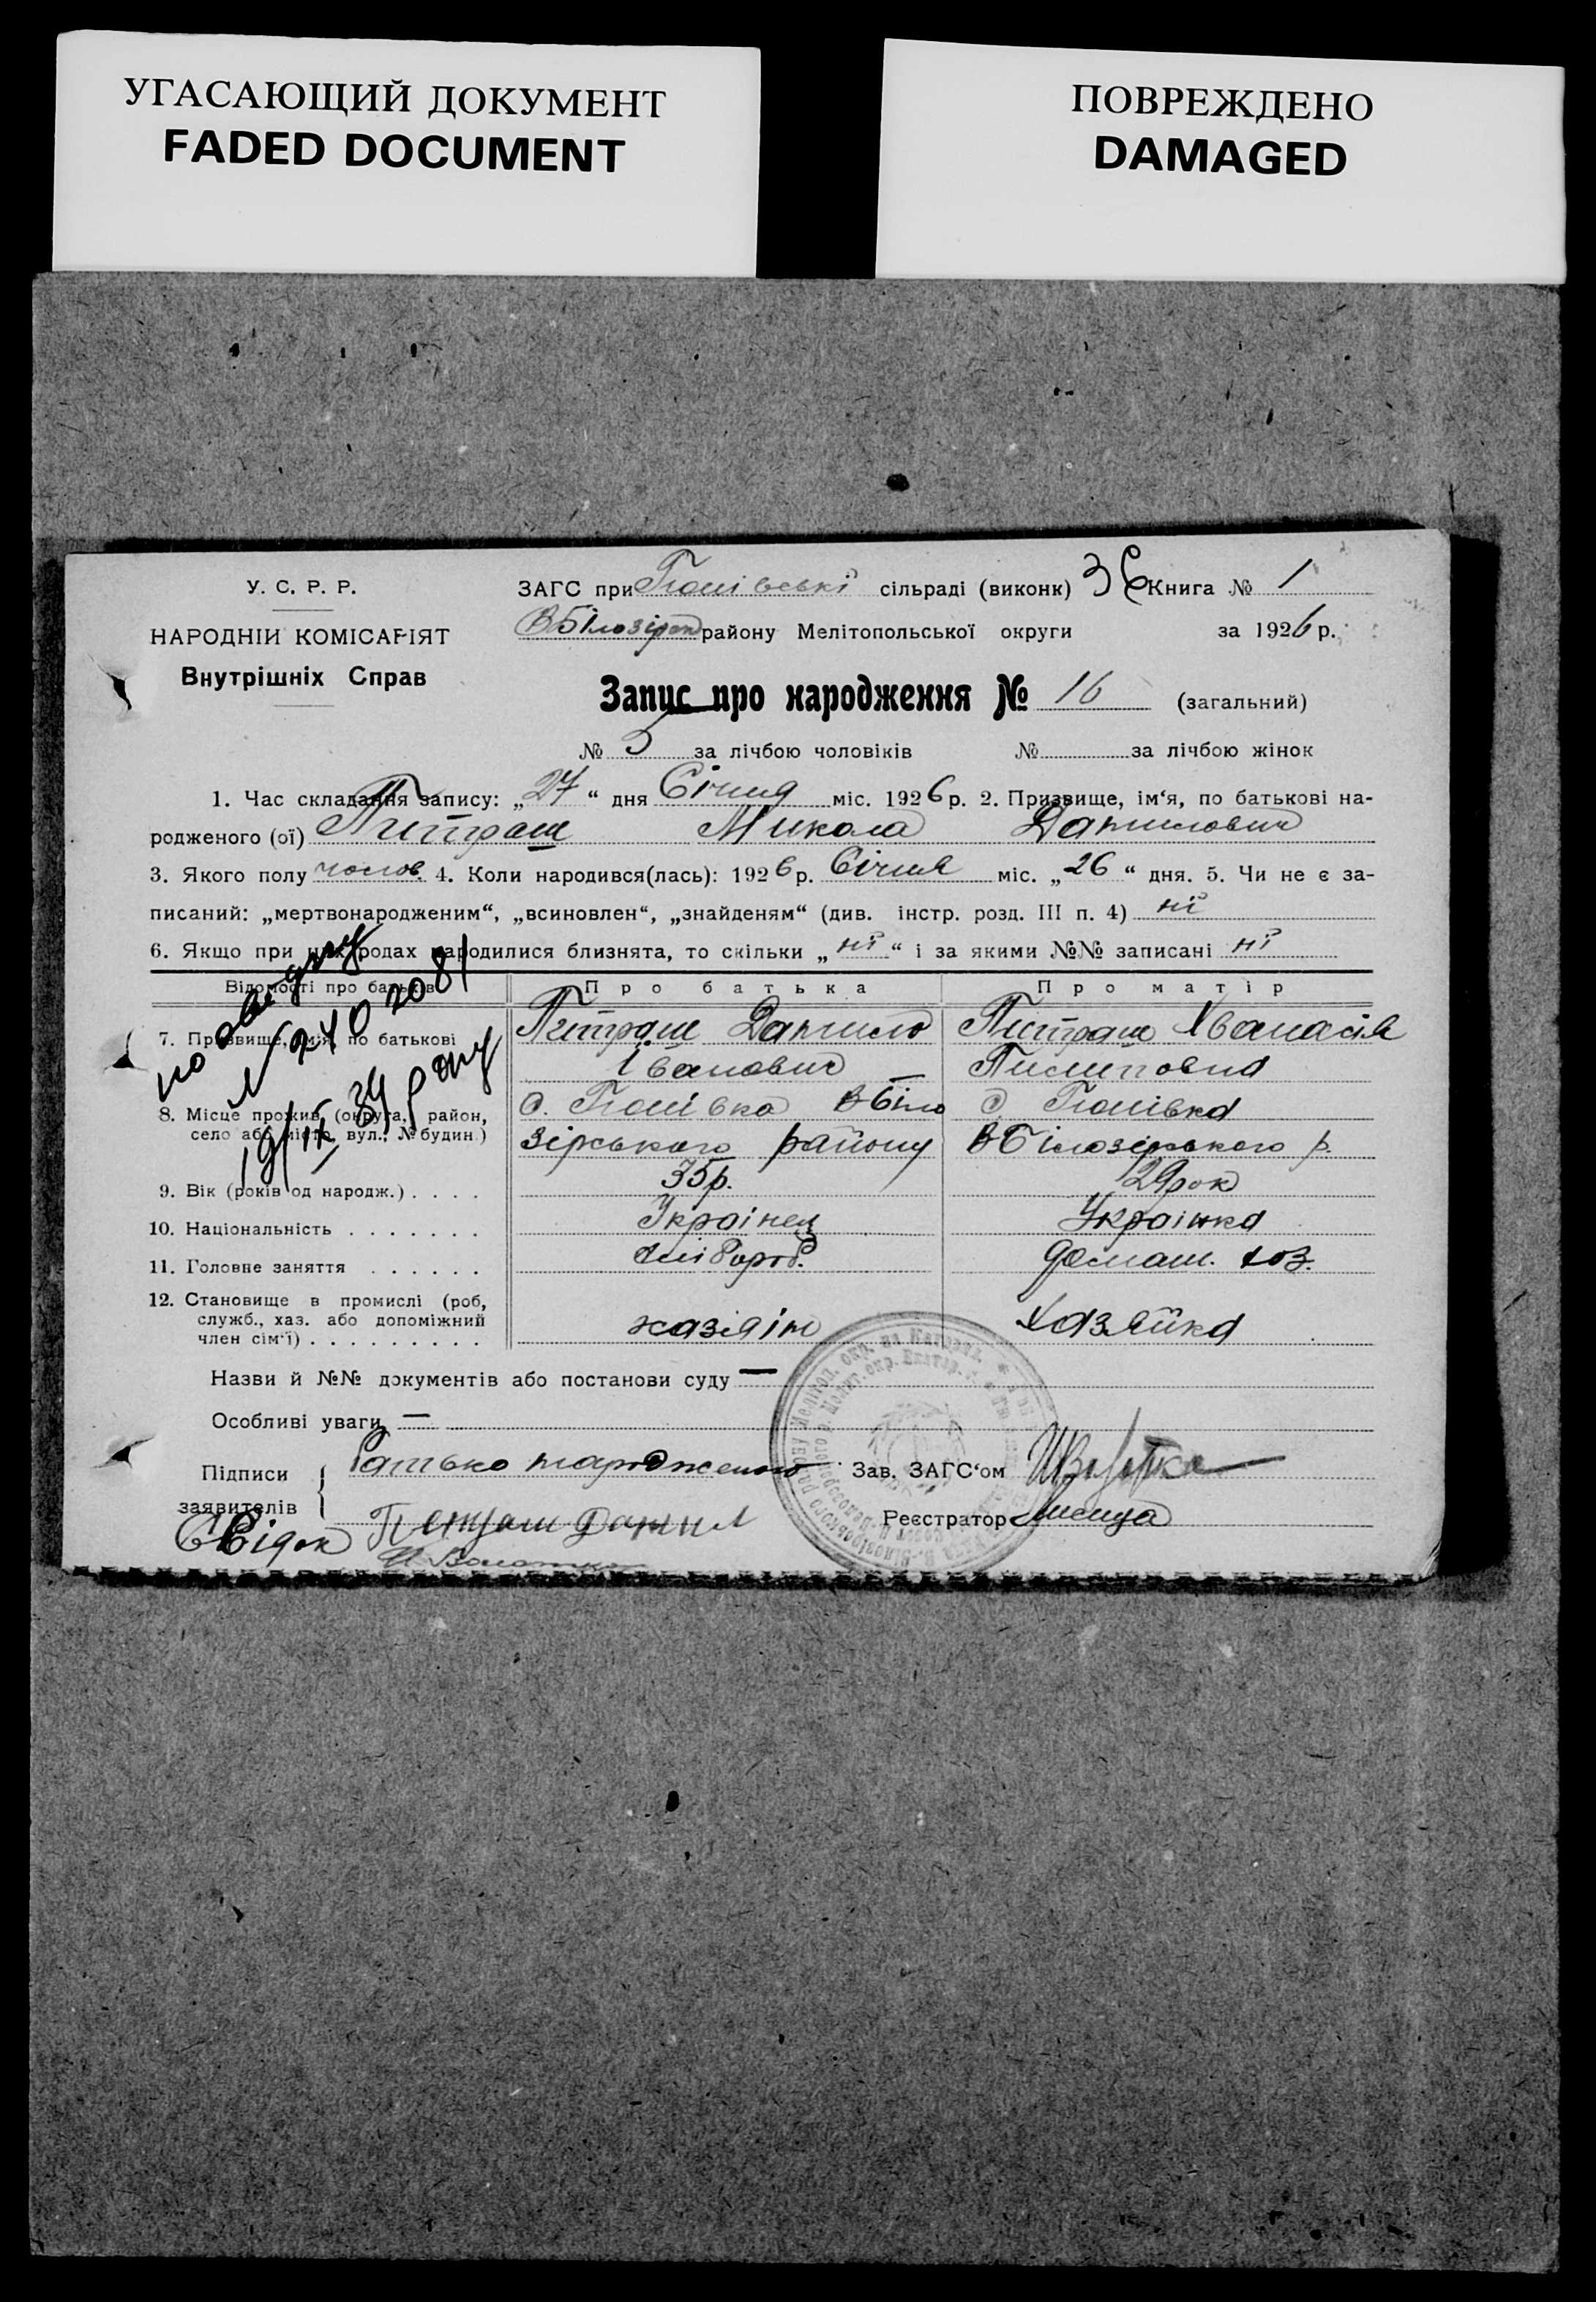 УГАСАЮЩИЙ ДОКУМЕНТ
FADED DOCUMENT
ПОВРЕЖДЕНО
DAMAGED
У. С. Р. Р.
НАРОДНІЙ КОМІСАРІЯТ
Внутрішніх Справ
ЗАГС при сільраді (виконк) Книга № 1
В Білозірск району Мелітопольської округи за 1926 р.
Запис про народження № 16 (загальний)
№ 5 за лічбою чоловіків № за лічбою жінок
1. Час складання запису: „27“ дня Січня міс. 1926 р. 2. Призвище, ім‘я, по батькові на-
родженого (ої) Питраш Микола Данилович
3. Якого полу чолов. 4. Коли народився(лась): 1926 р. Січня міс. „26“ дня. 5. Чи не є за-
писаний: „мертвонародженим“, „всиновлен“, „знайденям“ (див. інстр. розд. III п. 4) ні
6. Якщо при цих родах народилися близнята, то скільки „ні“ і за якими №№ записані ні
Відомості про батьків Про батька Про матір
7. Призвище, ім‘я по батькові Питраш Данило Питраш
Іванович Пилиповна
8. Місце прожив. (округа, район, с. В Біло с
село або місто, вул., № будин.) зірського району В Білозірського р.
9. Вік (років од народж.) 35 р. 29 рок
10. Національність Українец Українка
11. Головне заняття хлібороб. домаш. хоз.
12. Становище в промислі (роб,
служб., хаз. або допоміжний
член сім‘ї) хазяін Хазяйка
Назви й №№ документів або постанови суду —
Особливі уваги —
Підписи Батько народженого Зав. ЗАГС‘ом
заявителів Реєстратор Лисица
Свідок Петраш Данил